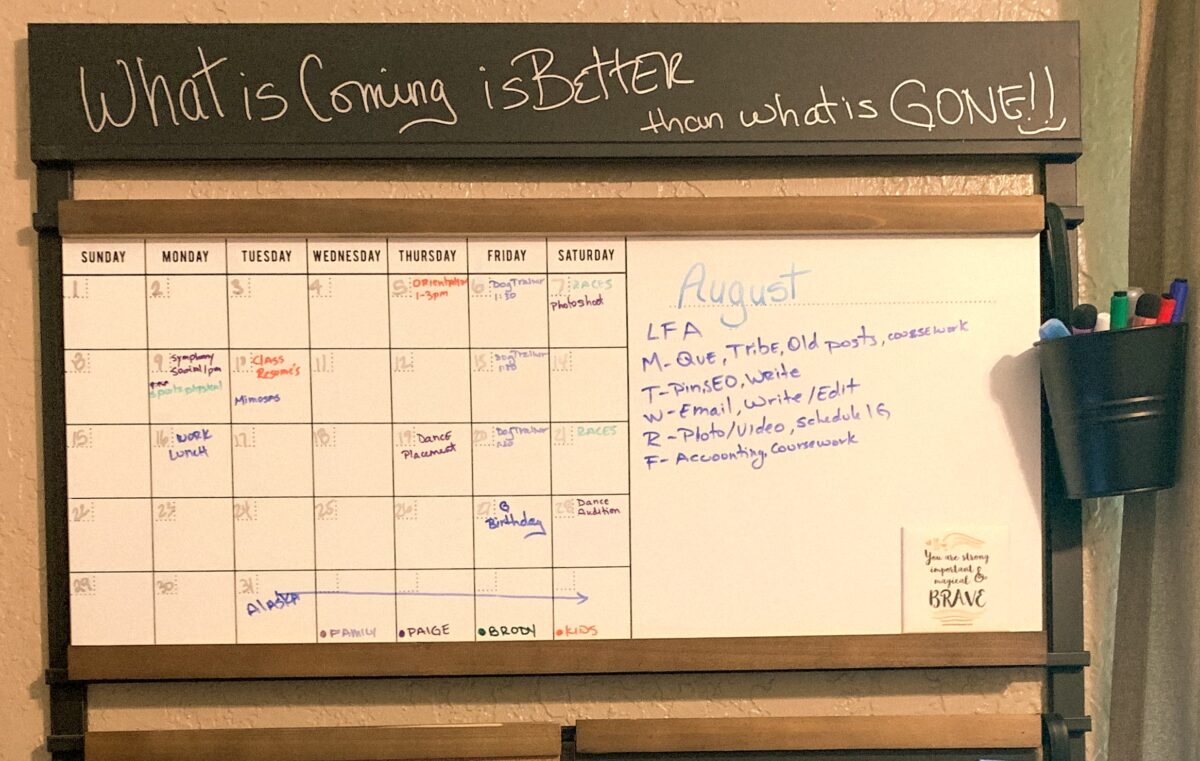 What is Coming is BETTER
than what is GONE!!
SUNDAY MONDAY TUESDAY WEDNESDAY THURSDAY FRIDAY SATURDAY
1 2 3 4 5 6 7
ORientation
1-3pm
DogTrainer
1:30
RACES
Photoshoot
8 9 10 11 12 13 14
Symphony
Social 1pm
sports physical
CLASS
Resume's
Mimosas
DogTrainer
1:30
15 16 17 18 19 20 21
WORK
LUNCH
DANCE
Placement
DogTrainer
1:30
RACES
22 23 24 25 26 27 28
B
Birthday
Dance
Audition
29 30 31
ALASKA
FAMILY PAIGE BRODY KIDS
August
LFA
M- QUE, TRIBE, Old posts, coursework
T- Pin, SEO, Write
W- Email, Write/Edit
R- Photo/Video, schedule IG
F- Accounting, Coursework
You are strong
important &
magical
BRAVE